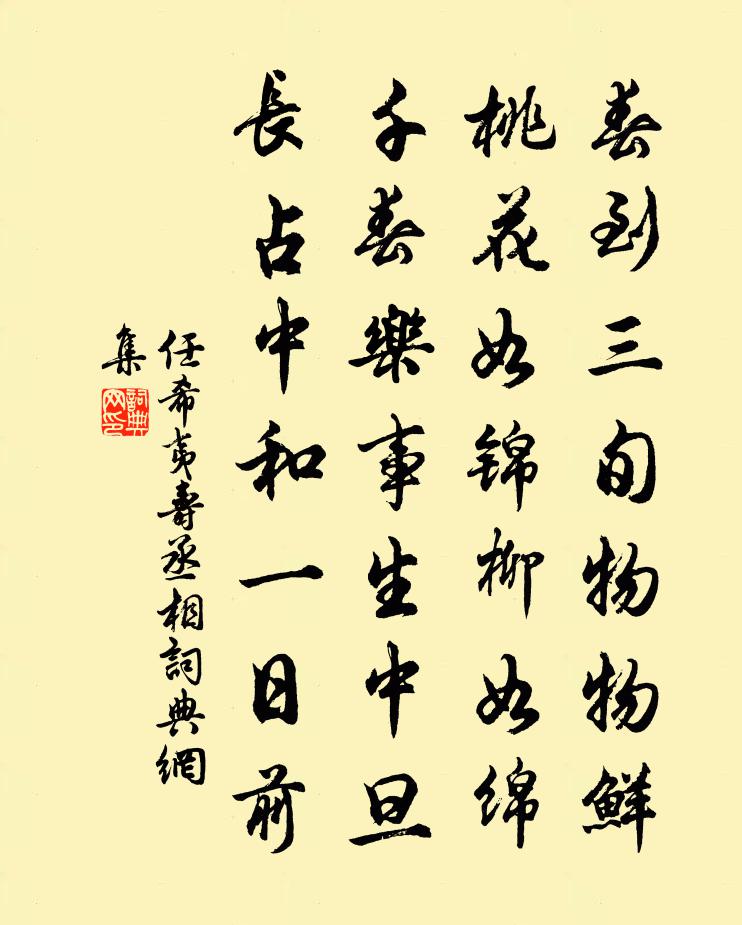 春到三旬物物鮮
桃花如锦柳如绵
千春樂事生中旦
長占中和一日前
任希夷壽丞相詞典網
集
詞典
网印